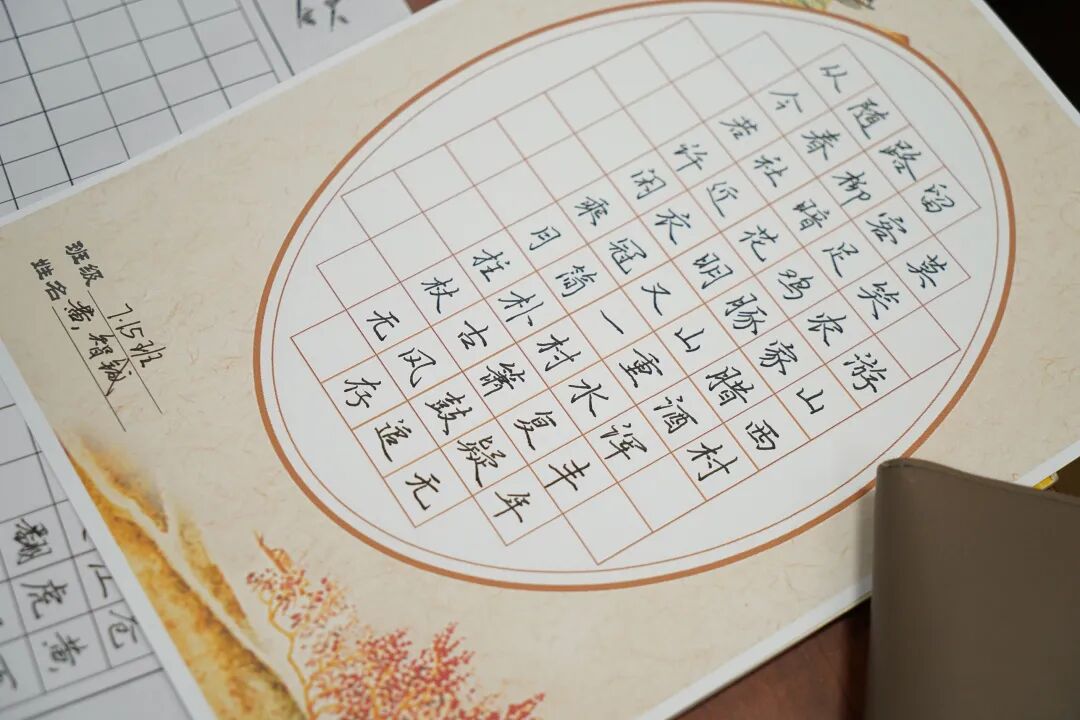 游山西村
莫笑农家腊酒浑丰年
留客足鸡豚山重水复疑无
路柳暗花明又一村箫鼓追
随春社近衣冠简朴古风存
从今若许闲乘月拄杖无
班级 7.15班
姓名 黄
江仓
翻虎黄